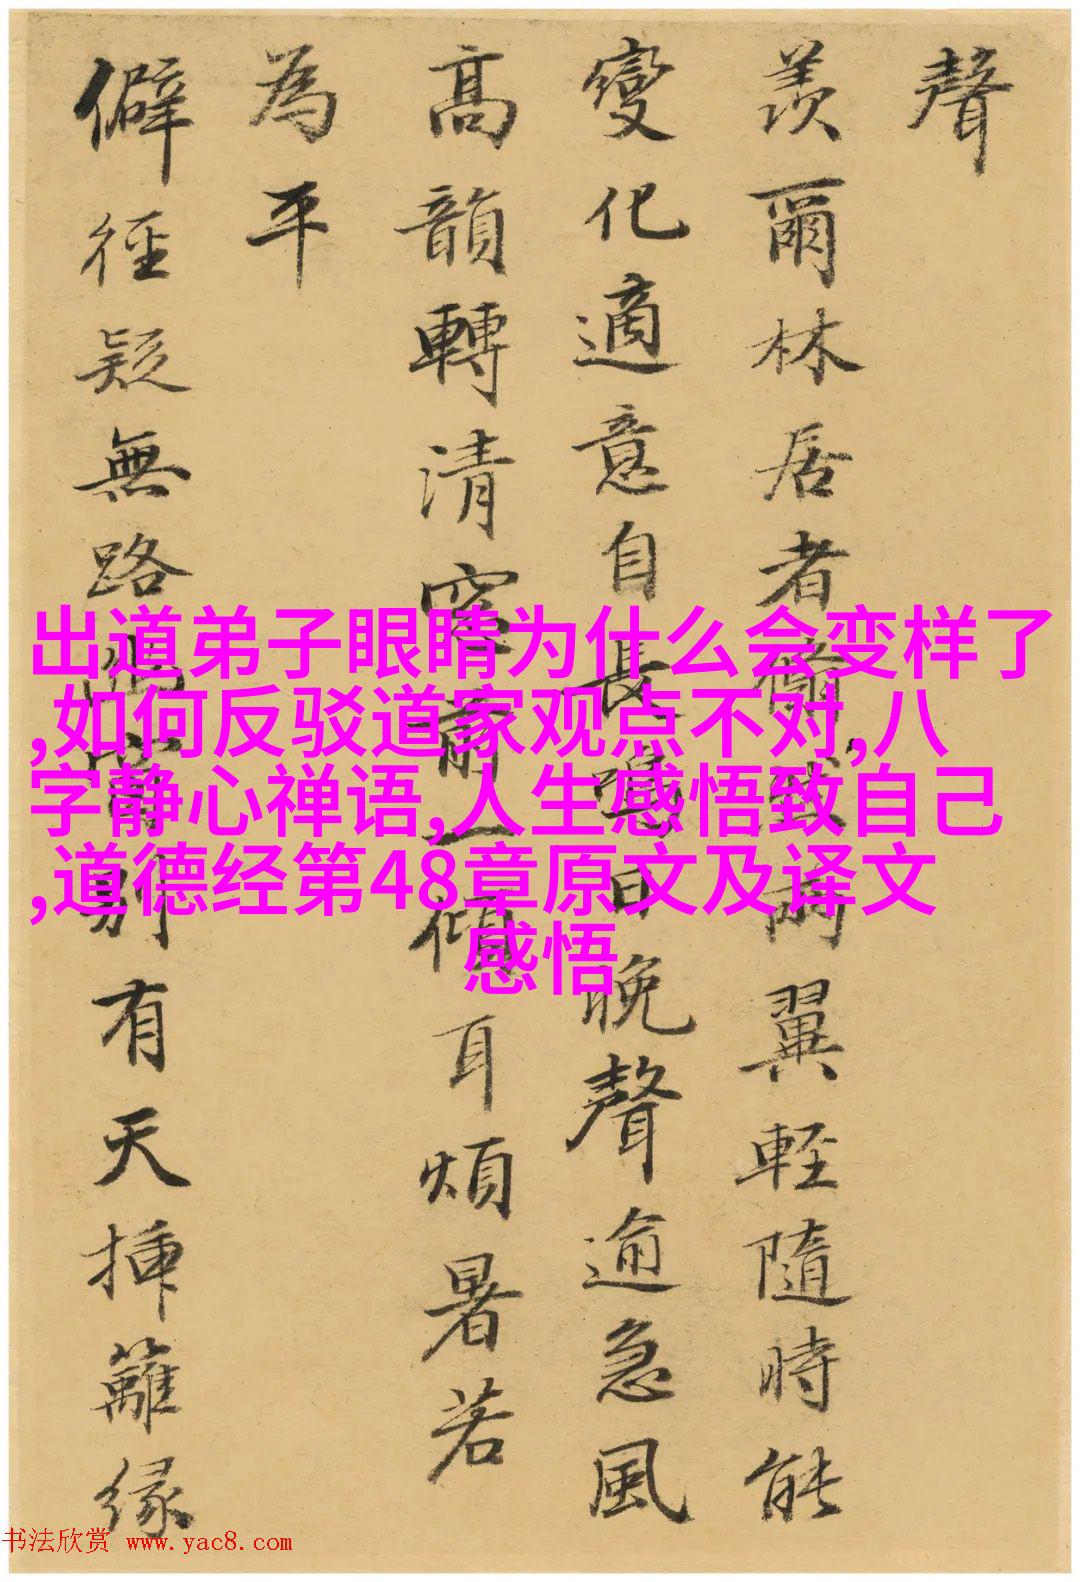 聲
羨爾林居者兩翼輕隨時能
變化適意自長鳴日晚聲逾急風
高韻轉清窓前一傾耳煩暑若
為平
僻徑疑無路別有天揷籬緣
出道弟子眼睛为什么会变样了
,如何反驳道家观点不对,八
字静心禅语,人生感悟致自己
,道德经第48章原文及译文
感悟
书法欣赏 www.yac8.com